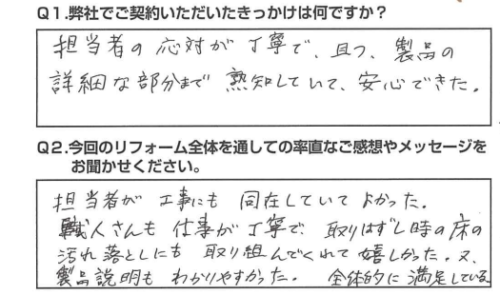 Q1.弊社でご契約いただいたきっかけは何ですか？
担当者の応対が丁寧で、且つ、製品の
詳細な部分まで熟知していて、安心できた。
Q2.今回のリフォーム全体を通しての率直なご感想やメッセージを
お聞かせください。
担当者が工事にも同在していてよかった。
職人さんも仕事が丁寧で、取りはずし時の床の
汚れ落としにも取り組んでくれて嬉しかった。又、
製品説明もわかりやすかった。全体的に満足している